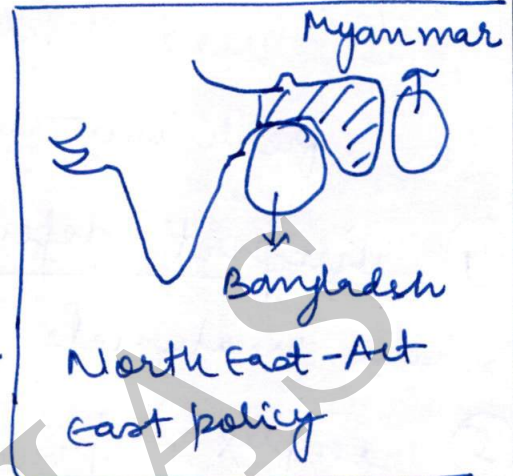 Myanmar
Bangladesh
North East - Act
East policy
IAS